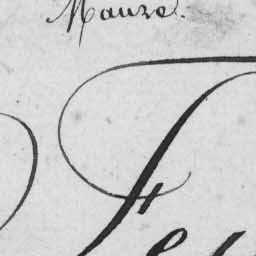 Mauze.
Fe